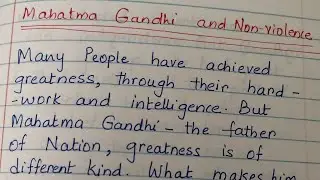 Mahatma Gandhi and Non-violence
Many People have achieved
greatness, through their hard-
-work and intelligence. But
Mahatma Gandhi - the father
of Nation, greatness is of
different kind. What makes him